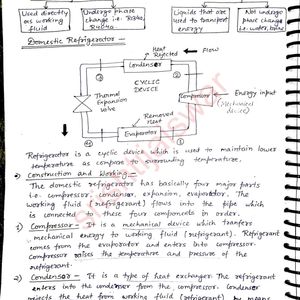 Used directly
as working
fluid
Undergo phase
change i.e. R134a,
R404a
Liquids that are
used to transport
energy
Not undergo
phase change
i.e. water, brine
Domestic Refrigerator —
Heat
Rejected
Flow
Condensor
Thermal
Expansion
valve
CYCLIC
DEVICE
Compressor
Energy input
(Mechanical
device)
Removed
Heat
Evaporator
Refrigerator is a cyclic device which is used to maintain lower
temperature as compare to surrounding temperature.
Construction and Working —
The domestic refrigerator has basically four major parts
i.e. compressor, condensor, expansion, evaporator. The
working fluid (refrigerant) flows into the pipe which
is connected in these four components in order.
1) Compressor — It is a mechanical device which transfers
mechanical energy to working fluid (refrigerant). Refrigerant
comes from the evaporator and enters into compressor.
Compressor raises the temperature and pressure of the
refrigerant.
2) Condensor — It is a type of heat exchanger. The refrigerant
enters into the condensor from the compressor. Condensor
rejects the heat from working fluid (refrigerant) by means